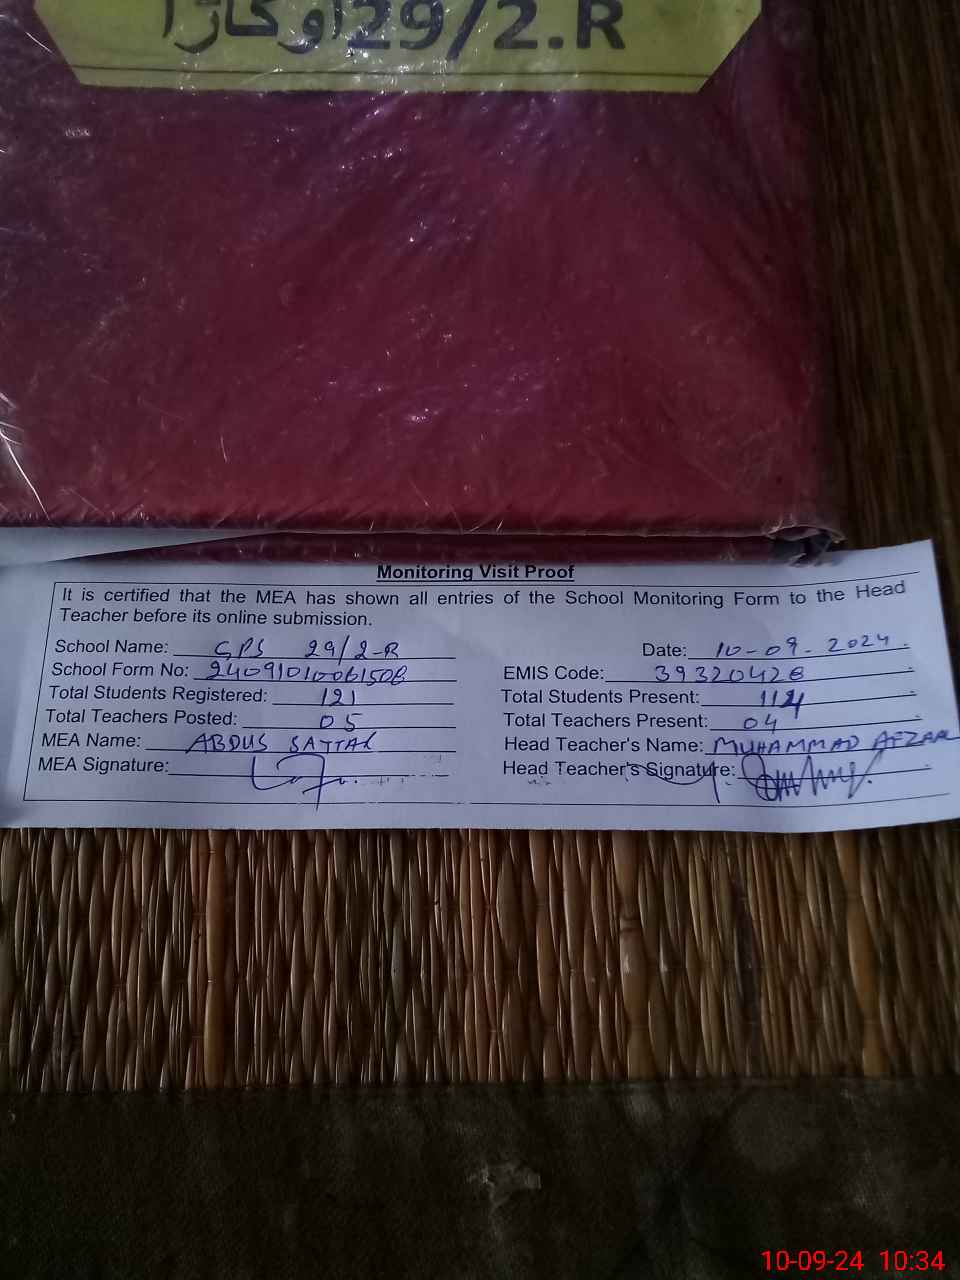 29/2.R اوکاڑا
Monitoring Visit Proof
It is certified that the MEA has shown all entries of the School Monitoring Form to the Head
Teacher before its online submission.
School Name: GPS 29/2-R Date: 10-09-2024
School Form No: EMIS Code: 39320428
Total Students Registered: 121 Total Students Present: 114
Total Teachers Posted: 05 Total Teachers Present: 04
MEA Name: ABDUS SATTAR Head Teacher's Name: MUHAMMAD AFZAL
MEA Signature: Head Teacher's Signature:
10-09-24 10:34